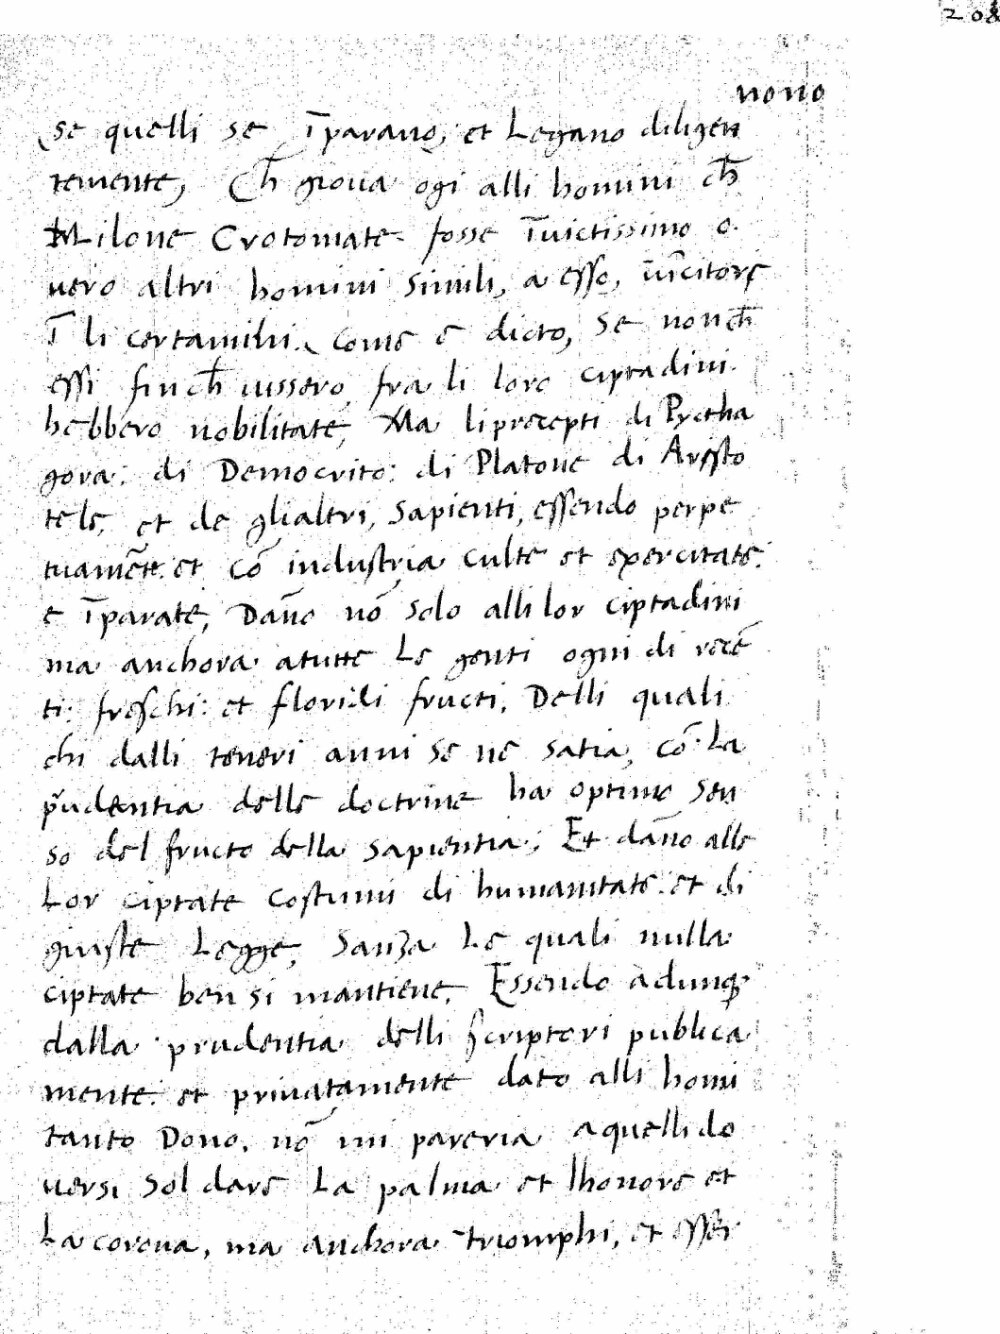 208
nono
se quelli se īparano, et Legano diligen
temente, Ch̄ gioua ogi alli homini ch̄
Milone Crotoniate fosse īuictissimo o
uero altri homini simili, a esso, uīcitore
ī li certamini. come e dicto, se non ch̄
essi fin ch̄ uissero, fra li loro ciptadini
hebbero nobilitate, Ma li precepti di Pyctha
gora: di Democrito: di Platone di Aristo
tele, et de glialtri, sapienti, essendo perpe
tuamēte: et cō industria culte et exercitate:
e īparate, Dāno nō solo alli lor ciptadini
ma anchora atutte Le genti ogni di recē
ti: freschi: et floridi fructi, Delli quali
chi dalli teneri anni se ne satia, cō La
prudentia delle doctrine ha optimo sen
so del fructo della sapientia; Et dāno alle
Lor ciptate costumi di humanitate: et di
giuste Legge, Sanza Le quali nulla
ciptate ben si mantiene. Essendo adunq
dalla prudentia delli scriptori publica
mente: et priuatamente dato alli homi
tanto Dono, nō mi pareria aquelli do
uersi Sol dare La palma et lhonore et
La corona, ma anchora triomphi, et esser